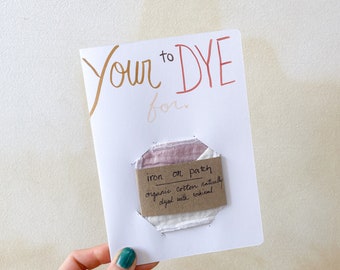 Your to DYE
for.
iron on patch
organic cotton naturally
dyed with